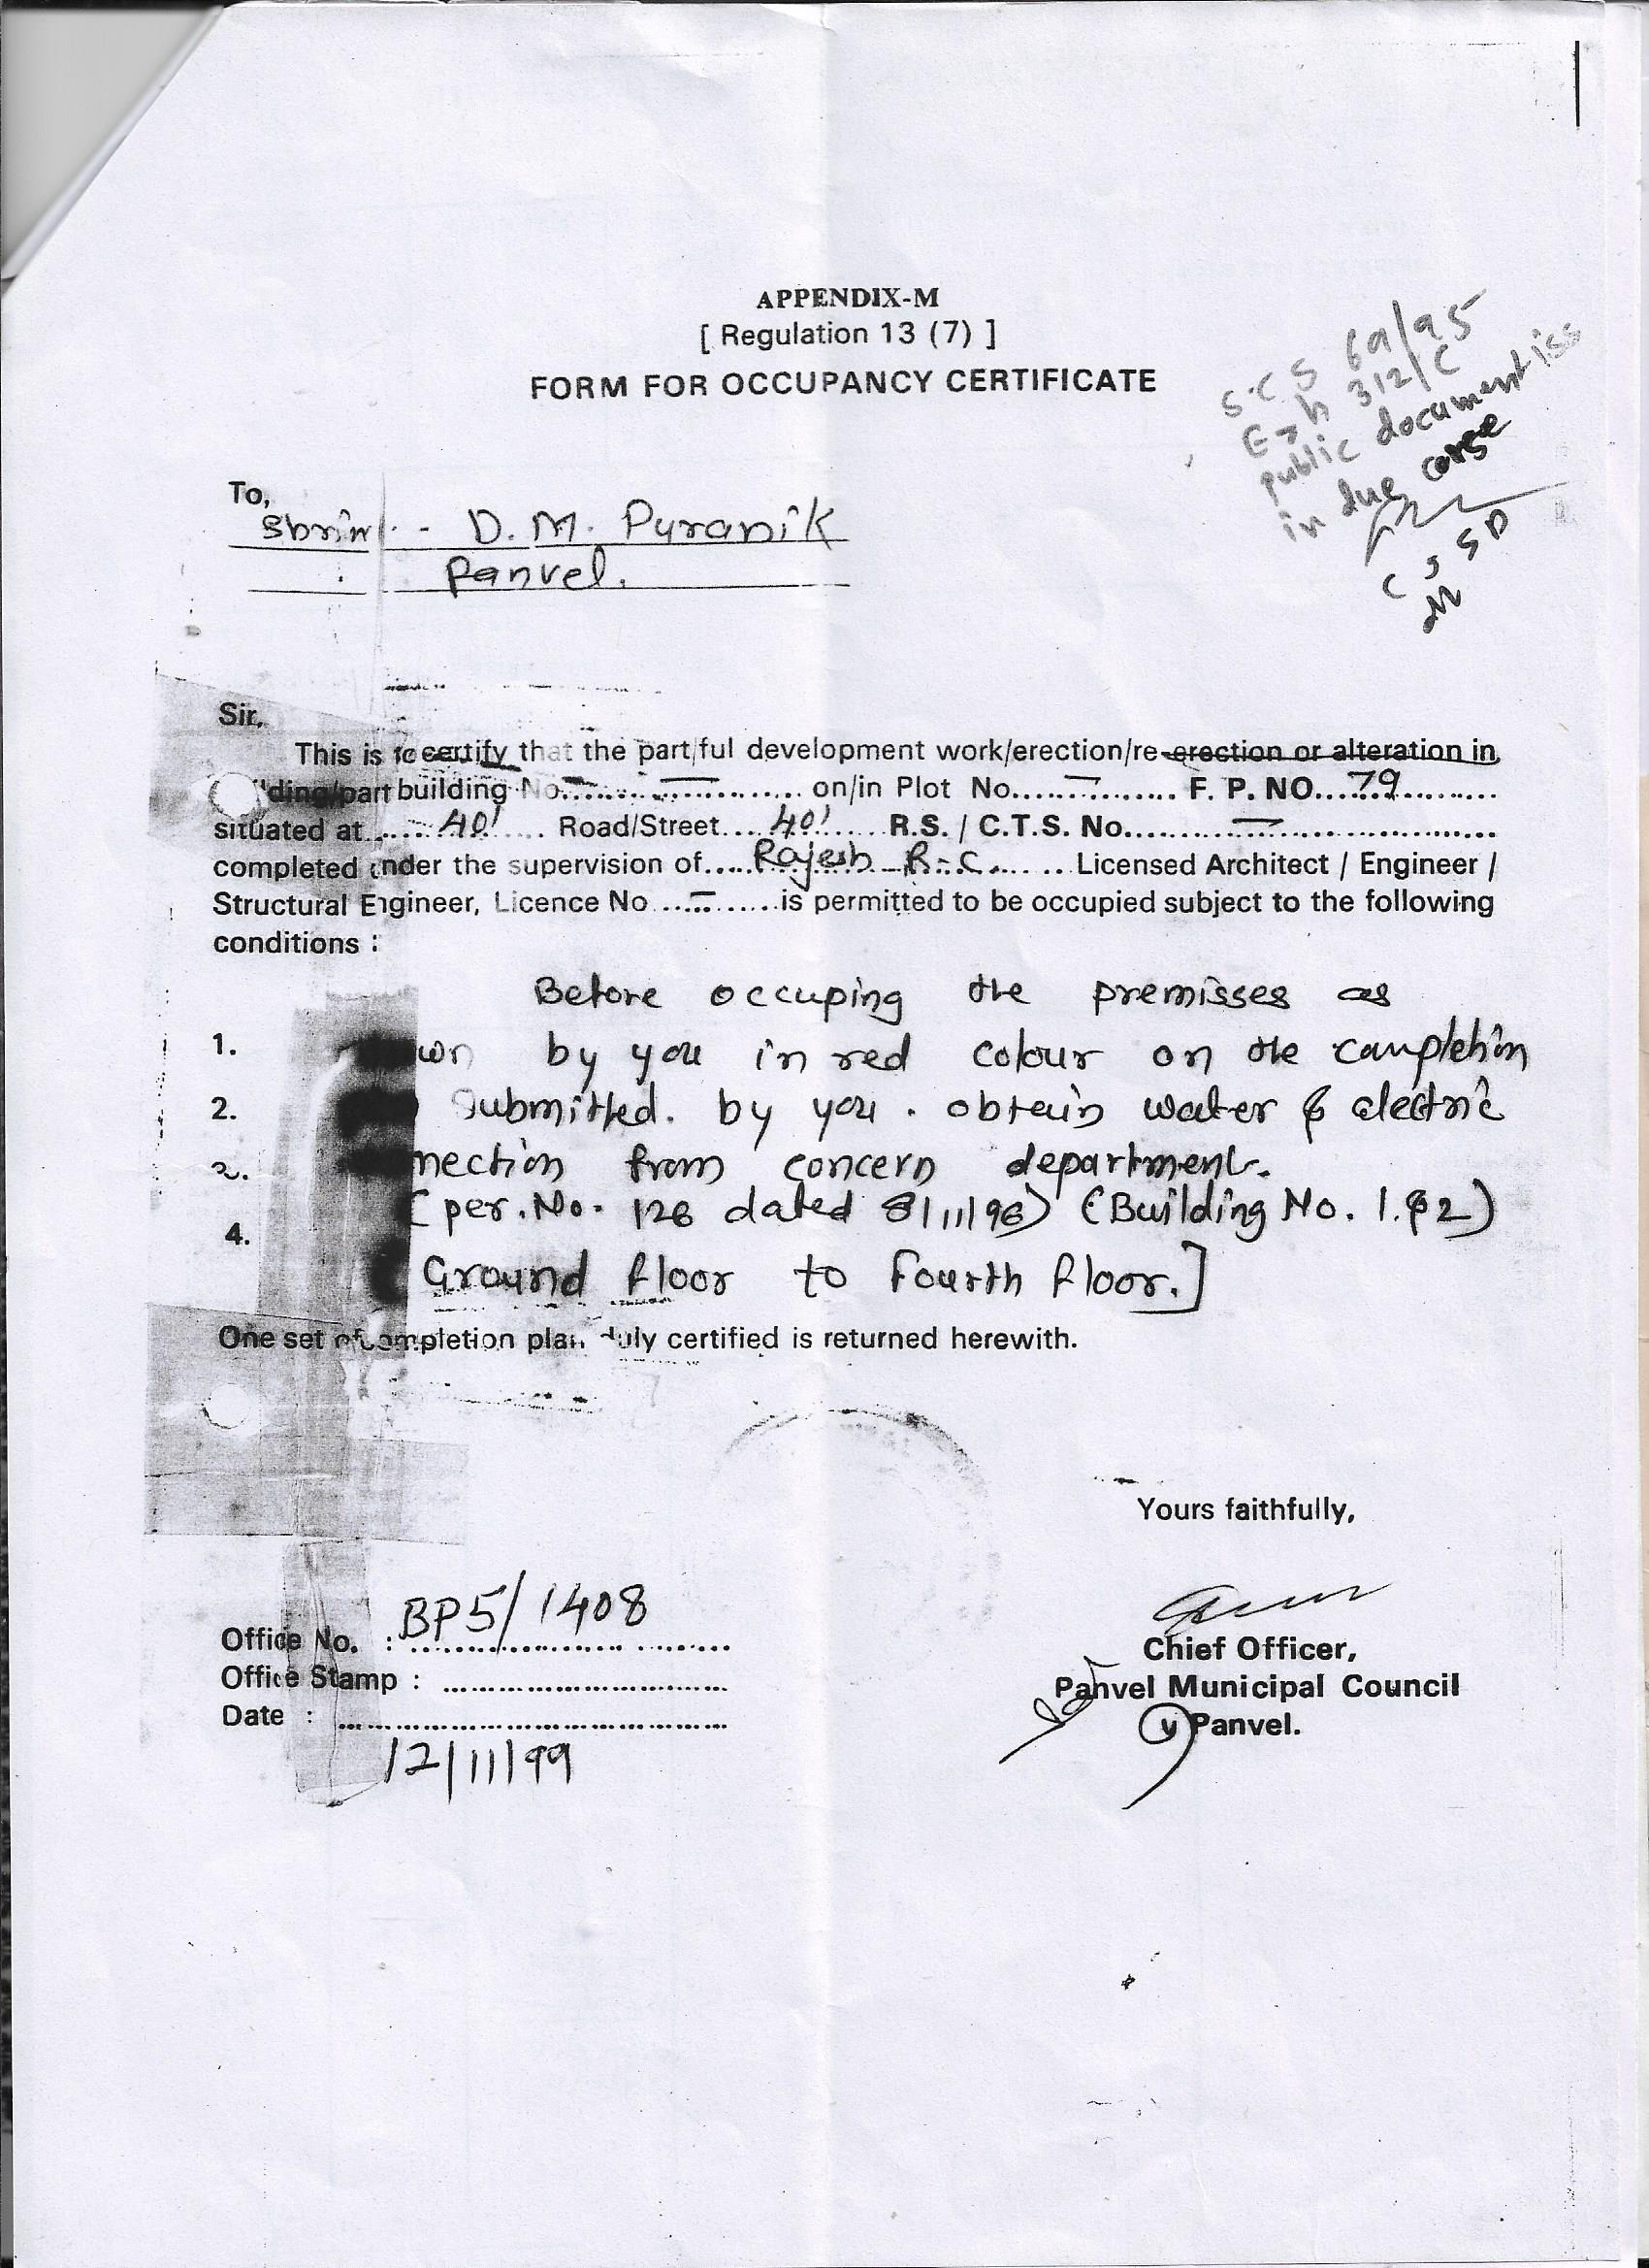 APPENDIX-M
[ Regulation 13 (7) ]
FORM FOR OCCUPANCY CERTIFICATE
S.C.S 69/95
Exh 312/C
public document iss
in due corse
To,
D. M. Puranik
Panvel.
Sir,
This is to certify that the part/ful development work/erection/re-erection or alteration in
building/part building No. on/in Plot No. F. P. NO. 79
situated at 40' Road/Street 40' R.S. / C.T.S. No.
completed under the supervision of Rajesh R. C. Licensed Architect / Engineer /
Structural Engineer, Licence No is permitted to be occupied subject to the following
conditions :
Before occuping the premisses as
1. wn by you in red colour on the completion
2. Submitted. by you. obtain water & electric
nection from concern department.
4. (per. No. 126 dated 8/11/96) (Building No. 1.&2)
Ground floor to Fourth floor.]
One set of completion plan duly certified is returned herewith.
Yours faithfully,
Office No. : BP5/1408
Office Stamp :
Date :
12/11/99
Chief Officer,
Panvel Municipal Council
Panvel.